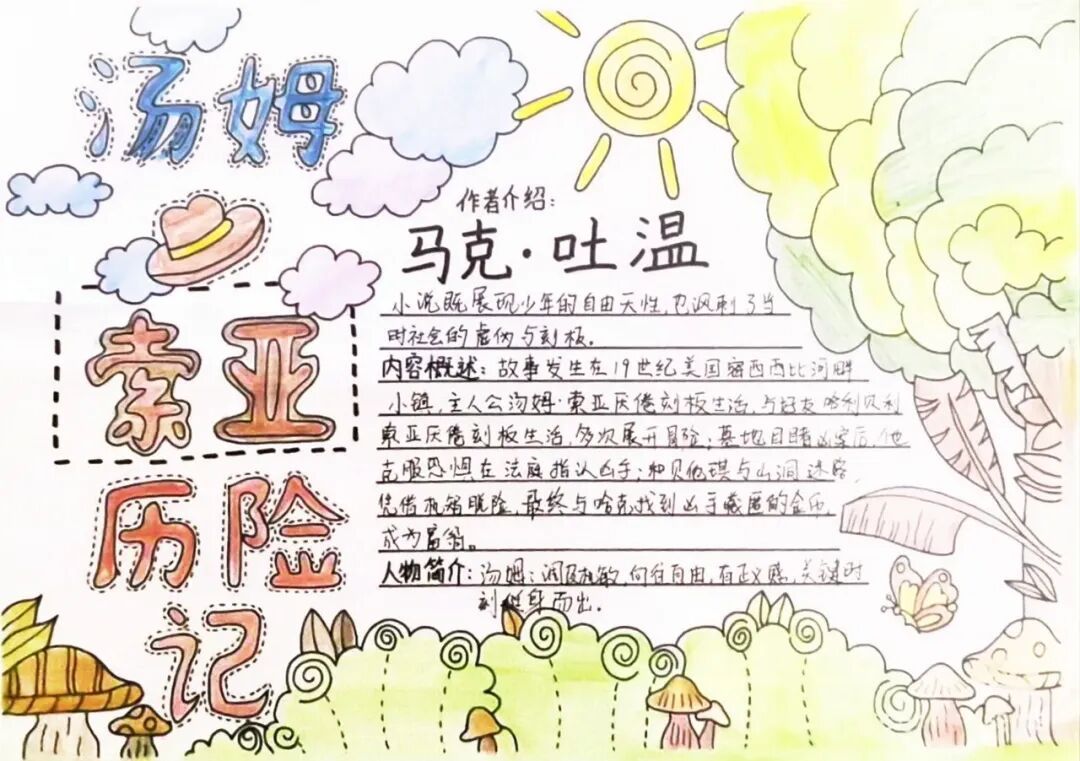 汤姆
索亚
历险
记
作者介绍:
马克·吐温
小说既展现少年的自由天性,也讽刺了当
时社会的虚伪与刻板。
内容概述:故事发生在19世纪美国密西西比河畔
小镇,主人公汤姆·索亚厌倦刻板生活,与好友哈利贝利
索亚厌倦刻板生活,多次展开冒险;墓地目睹凶案后,他
克服恐惧在法庭指认凶手;和贝琪与山洞迷路,
凭借机智脱险,最终与哈克找到凶手藏匿的金币,
成为富翁。
人物简介:汤姆:调皮机敏,向往自由,有正义感,关键时
刻挺身而出.